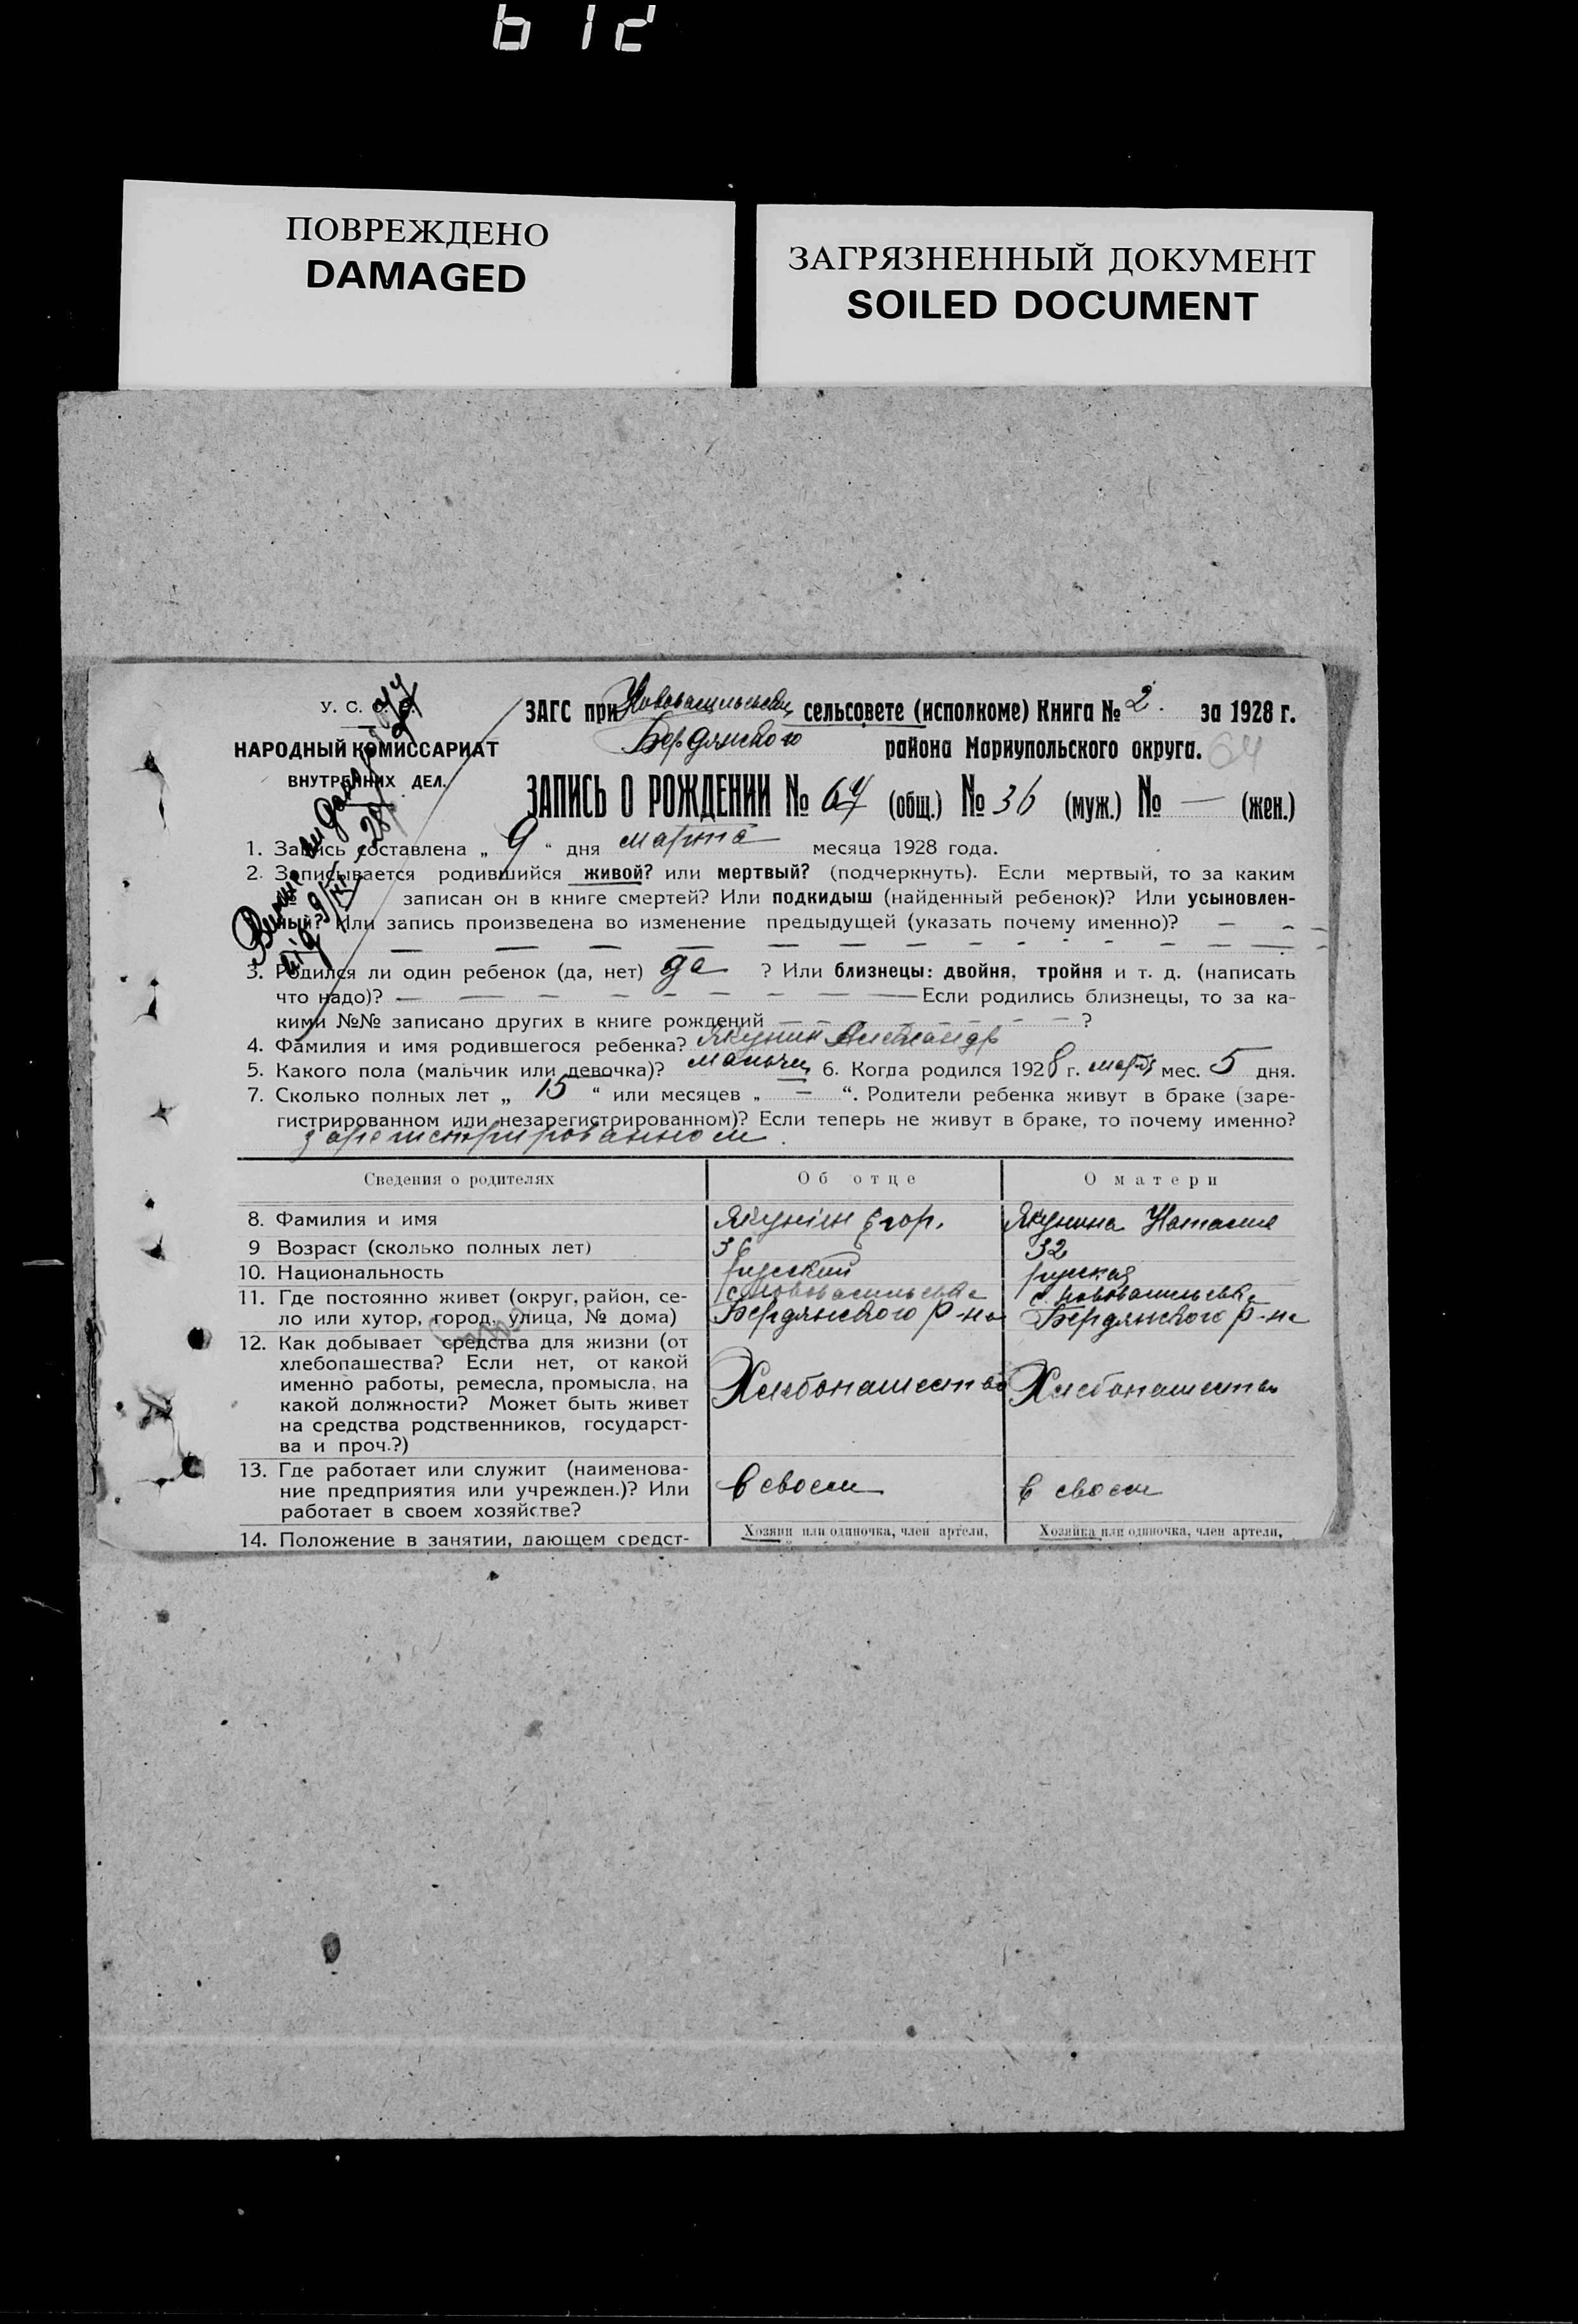 612
ПОВРЕЖДЕНО
DAMAGED
ЗАГРЯЗНЕННЫЙ ДОКУМЕНТ
SOILED DOCUMENT
У. С. С. Р.
НАРОДНЫЙ КОМИССАРИАТ
ВНУТРЕННИХ ДЕЛ.
ЗАГС при Нововасильевск сельсовете (исполкоме) Книга № 2. за 1928 г.
Бердянского района Мариупольского округа. 64
ЗАПИСЬ О РОЖДЕНИИ № 64 (общ.) № 36 (муж.) № — (жен.)
1. Запись составлена „ 9 “ дня марта месяца 1928 года.
2. Записывается родившийся живой? или мертвый? (подчеркнуть). Если мертвый, то за каким
записан он в книге смертей? Или подкидыш (найденный ребенок)? Или усыновлен-
ный? Или запись произведена во изменение предыдущей (указать почему именно)? — — —
3. Родился ли один ребенок (да, нет) да ? Или близнецы: двойня, тройня и т. д. (написать
что надо)? — — — — — — — — Если родились близнецы, то за ка-
кими №№ записано других в книге рождений — — — — — — ?
4. Фамилия и имя родившегося ребенка? Якунин Александр
5. Какого пола (мальчик или девочка)? мальчик 6. Когда родился 1928 г. марта мес. 5 дня.
7. Сколько полных лет „ 15 “ или месяцев „ — “. Родители ребенка живут в браке (заре-
гистрированном или незарегистрированном)? Если теперь не живут в браке, то почему именно?
зарегистрированном.
Сведения о родителях Об отце О матери
8. Фамилия и имя Якунин Егор. Якунина Наталия
9 Возраст (сколько полных лет) 36 32
10. Национальность русский русская
11. Где постоянно живет (округ, район, се- с. Нововасильевка с. Нововасильевка
ло или хутор, город, улица, № дома) Бердянского р-на Бердянского р-на
12. Как добывает средства для жизни (от
хлебопашества? Если нет, от какой
именно работы, ремесла, промысла, на Хлебопашество Хлебопашество
какой должности? Может быть живет
на средства родственников, государст-
ва и проч.?)
13. Где работает или служит (наименова-
ние предприятия или учрежден.)? Или в своем в своем
работает в своем хозяйстве?
14. Положение в занятии, дающем средст- Хозяин или одиночка, член артели, Хозяйка или одиночка, член артели,